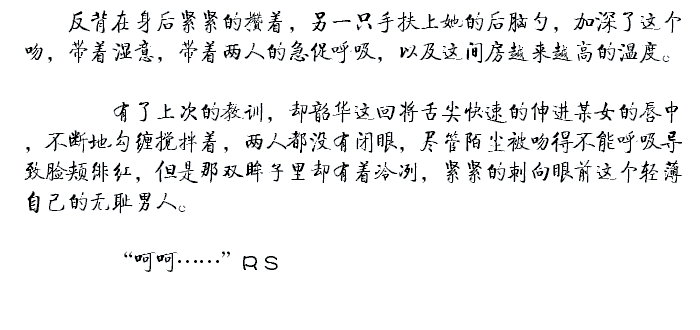 反背在身后紧紧的攒着，另一只手扶上她的后脑勺，加深了这个
吻，带着湿意，带着两人的急促呼吸，以及这间房越来越高的温度。
有了上次的教训，却韶华这回将舌尖快速的伸进某女的唇中
，不断地勾缠搅拌着，两人都没有闭眼，尽管陌尘被吻得不能呼吸导
致脸颊绯红，但是那双眸子里却有着冷冽，紧紧的刺向眼前这个轻薄
自己的无耻男人。
“呵呵……”RS